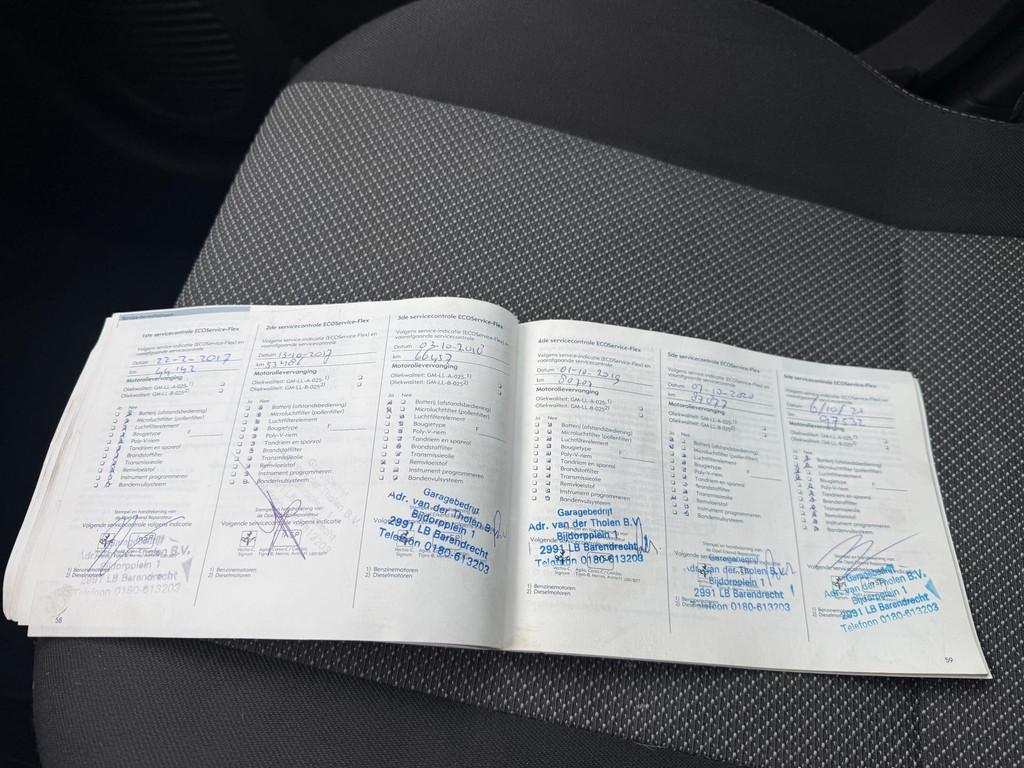 1ste servicecontrole ECOService-Flex
Volgens service-indicatie (ECOService Flex) en
voorafgaande servicecontrole
Datum 22-2-2017
km 44142
Motorolievervanging
Oliekwaliteit: GM-LL-A-025 1)
Oliekwaliteit: GM-LL-B-025 2)
Ja Nee
Batterij (afstandsbediening)
Microluchtfilter (pollenfilter)
Luchtfilterelement
Bougietype F
Poly-V-riem
Tandriem en spanrol
Brandstoffilter
Transmissieolie
Remvloeistof
Instrument programmeren
Bandenvulsysteem
Stempel en handtekening van
de Opel Erkend Reparateur
Volgende servicecontrole volgens indicatie
Garagebedrijf
2991 LB Barendrecht
Telefoon 0180-613203
1) Benzinemotoren
2) Dieselmotoren
58
2de servicecontrole ECOService-Flex
Volgens service-indicatie (ECOService Flex) en
voorafgaande servicecontrole
Datum 13-10-2017
km 53486
Motorolievervanging
Oliekwaliteit: GM-LL-A-025 1)
Oliekwaliteit: GM-LL-B-025 2)
Ja Nee
Batterij (afstandsbediening)
Microluchtfilter (pollenfilter)
Luchtfilterelement
Bougietype F
Poly-V-riem
Tandriem en spanrol
Brandstoffilter
Transmissieolie
Remvloeistof
Instrument programmeren
Bandenvulsysteem
Volgende servicecontrole volgens indicatie
1) Benzinemotoren
2) Dieselmotoren
3de servicecontrole ECOService-Flex
Volgens service-indicatie (ECOService Flex) en
voorafgaande servicecontrole
Datum 03-10-2018
km 66437
Motorolievervanging
Oliekwaliteit: GM-LL-A-025 1)
Oliekwaliteit: GM-LL-B-025 2)
Ja Nee
Batterij (afstandsbediening)
Microluchtfilter (pollenfilter)
Luchtfilterelement
Bougietype F
Poly-V-riem
Tandriem en spanrol
Brandstoffilter
Transmissieolie
Remvloeistof
Instrument programmeren
Bandenvulsysteem
Garagebedrijf
Adr. van der Tholen B.V.
Bijdorpplein 1
2991 LB Barendrecht
Telefoon 0180-613203
1) Benzinemotoren
2) Dieselmotoren
4de servicecontrole ECOService-Flex
Volgens service-indicatie (ECOService Flex) en
voorafgaande servicecontrole
Datum 01-10-2019
km 80707
Motorolievervanging
Oliekwaliteit: GM-LL-A-025 1)
Oliekwaliteit: GM-LL-B-025 2)
Ja Nee
Batterij (afstandsbediening)
Microluchtfilter (pollenfilter)
Luchtfilterelement
Bougietype F
Poly-V-riem
Tandriem en spanrol
Brandstoffilter
Transmissieolie
Remvloeistof
Instrument programmeren
Bandenvulsysteem
Garagebedrijf
Adr. van der Tholen B.V.
Bijdorpplein 1
2991 LB Barendrecht
Telefoon 0180-613203
1) Benzinemotoren
2) Dieselmotoren
5de servicecontrole ECOService-Flex
Volgens service-indicatie (ECOService Flex) en
voorafgaande servicecontrole
Datum 07-10-2020
km 87077
Motorolievervanging
Oliekwaliteit: GM-LL-A-025 1)
Oliekwaliteit: GM-LL-B-025 2)
Ja Nee
Batterij (afstandsbediening)
Microluchtfilter (pollenfilter)
Luchtfilterelement
Bougietype F
Poly-V-riem
Tandriem en spanrol
Brandstoffilter
Transmissieolie
Remvloeistof
Instrument programmeren
Bandenvulsysteem
Stempel en handtekening van
de Opel Erkend Reparateur
Garagebedrijf
Adr. van der Tholen B.V.
Bijdorpplein 1
2991 LB Barendrecht
Telefoon 0180-613203
6de servicecontrole ECOService-Flex
Volgens service-indicatie (ECOService Flex) en
voorafgaande servicecontrole
Datum
km 97532
Motorolievervanging
Oliekwaliteit: GM-LL-A-025 1)
Oliekwaliteit: GM-LL-B-025 2)
Batterij (afstandsbediening)
Microluchtfilter (pollenfilter)
Luchtfilterelement
Bougietype
Poly-V-riem
Tandriem en spanrol
Brandstoffilter
Transmissieolie
Remvloeistof
Instrument programmeren
Bandenvulsysteem
Garagebedrijf
Adr. van der Tholen B.V.
Bijdorpplein 1
2991 LB Barendrecht
Telefoon 0180-613203
59